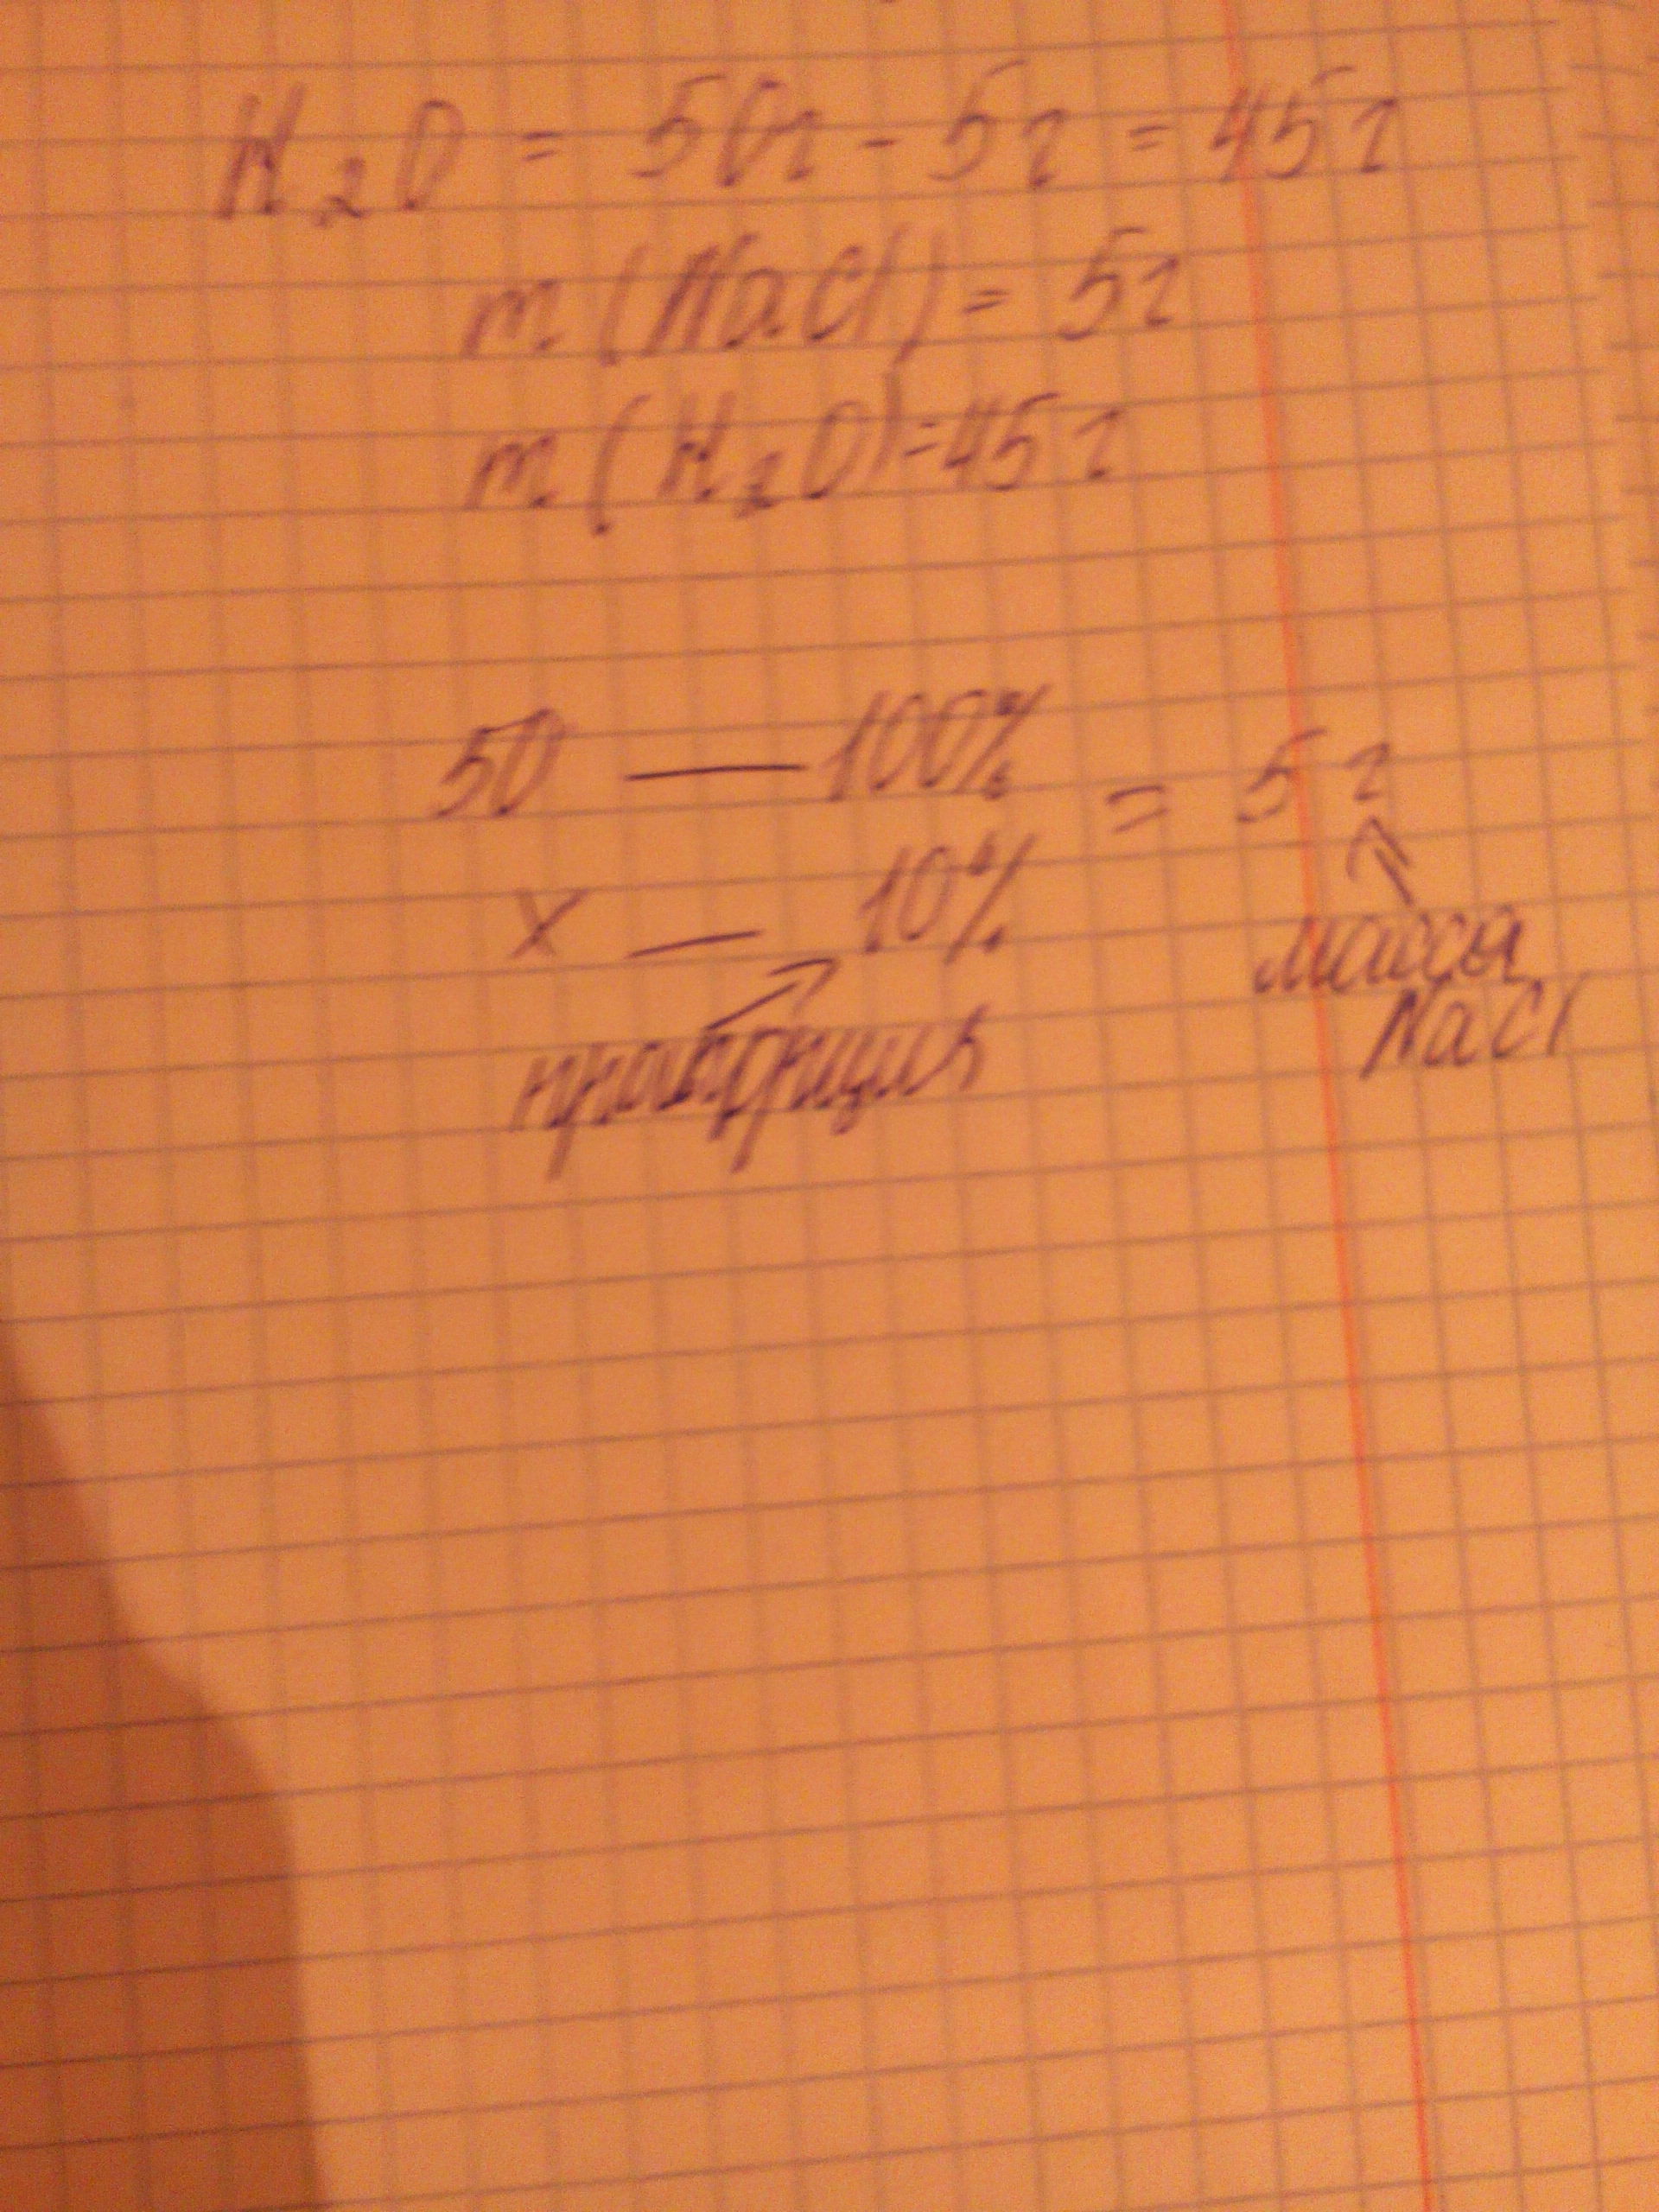 H₂O = 50г - 5г = 45г
m (NaCl) = 5г
m (H₂O) = 45г
50 — 100%
= 5г
x — 10%
масса
NaCl